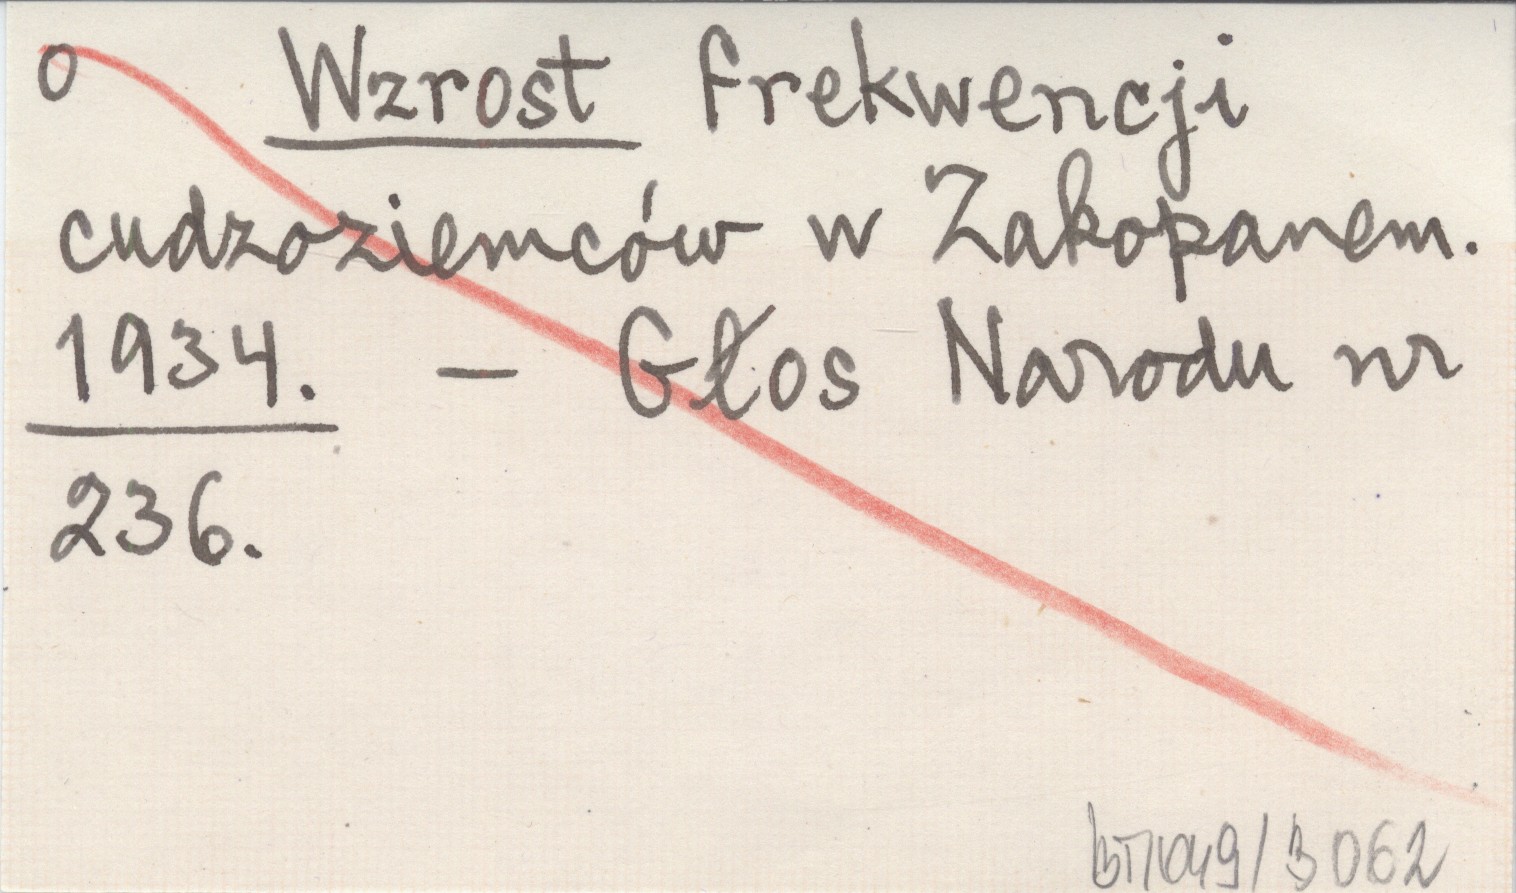 0 Wzrost frekwencji
cudzoziemców w Zakopanem.
1934. — Głos Narodu nr
236.